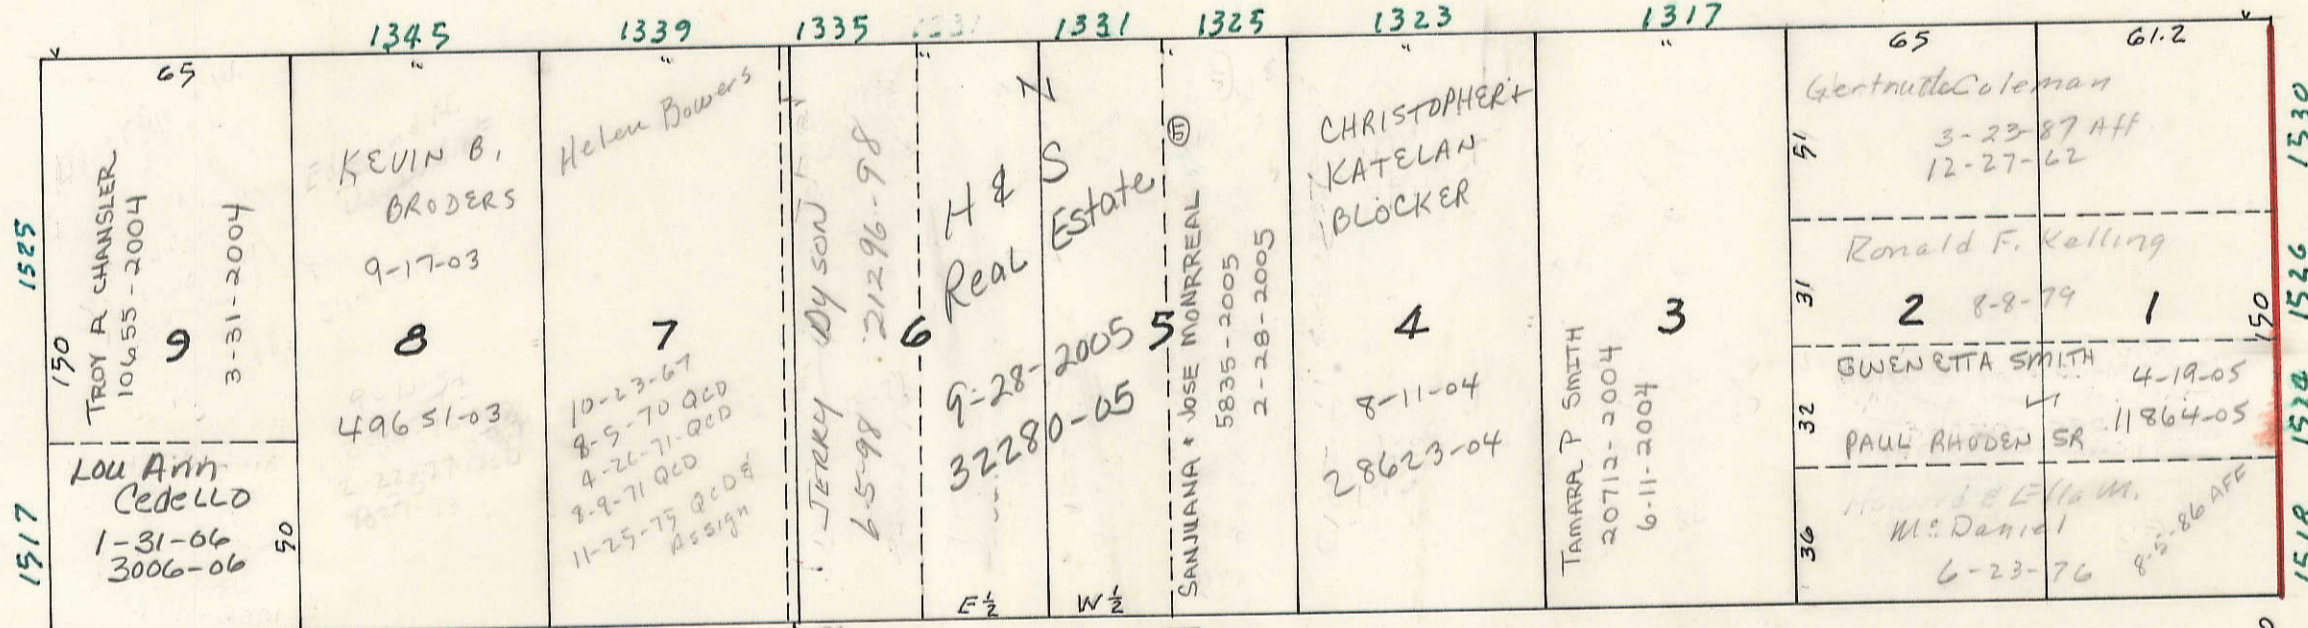 1345
1339
1335
1331
1331
1325
1323
1317
65
"
"
"
"
"
65
61.2
1525
1517
TROY A CHANSLER
10655-2004
3-31-2004
150
9
Lou Ann
Cedello
1-31-06
3006-06
50
KEVIN B.
BRODERS
9-17-03
8
49651-03
Helen Bowers
7
10-23-67
8-5-70 QCD
4-26-71-QCD
8-9-71 QCD
11-25-75 QCD &
Assign
JERRY DYSON
6-5-98 21296-98
6
N
H & S
Real Estate
9-28-2005
32280-05
E½
W½
5
15
SANJUANA & JOSE MONRREAL
5835-2005
2-28-2005
CHRISTOPHER &
KATELAN
BLOCKER
4
8-11-04
28623-04
3
TAMARA P SMITH
20712-2004
6-11-2004
Gertrude Coleman
3-23-87 Aff
12-27-62
51
Ronald F. Kelling
8-8-79
31
2
1
150
GWENETTA SMITH
4-19-05
11864-05
PAUL RHODEN SR
32
& Ella M.
McDaniel
6-23-76
8-5-86 AFF
36
1530
1526
1524
1518